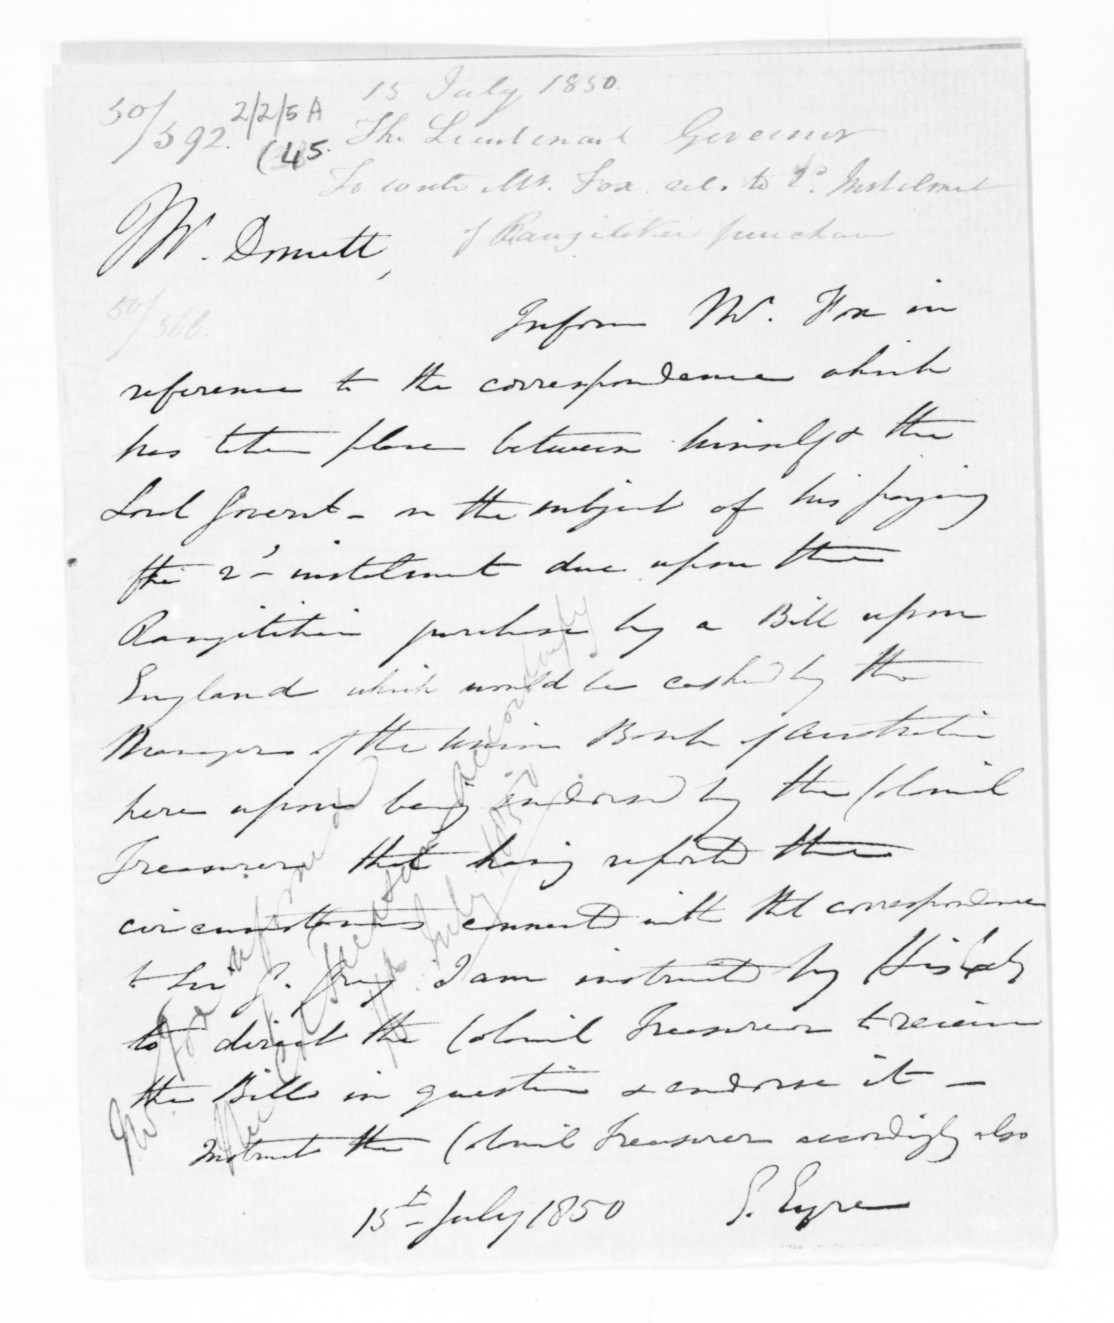 15 July 1850.
50/592. 2/2/5A
(45.
The Lieutenant Governor
To write Mr. Fox rel. to 2d. Instalment
of Rangitikei purchase
Mr. Domett,
50/566.
Inform Mr. Fox in
reference to the correspondence which
has taken place between himself & the
Local Govert - on the subject of his paying
the 2d instalment due upon the
Rangitikei purchase by a Bill upon
England which would be cashed by the
Manager of the Union Bank of Australia
here upon being endorsed by the Colonial
Treasurer that having reported the
circumstances connected with that correspondence
to Sir G. Grey I am instructed by His Excly
to direct the Colonial Treasurer to receive
the Bills in question & endorse it -
Instruct the Colonial Treasurer accordingly also
15t July 1850 E. Eyre
Mr. Fox informed
and Col Treasurer accordingly
July 1850